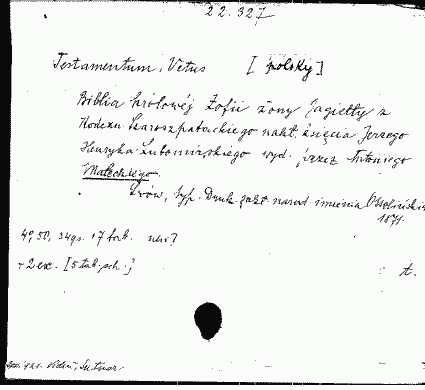 22.327
Testamentum, Vetus [polsky]
Biblia królowéj Zofii żony Jagiełły z
Kodexu Szaroszpatackiego nakł. księcia Jerzego
Henryka Lubomirskiego wyd. przez Antoniego
Małeckiego.
Lwów, typ. Druk. zakł. narod. imienia Ossolińskich
1871.
4°, 50, 34
+ 2 ex. [5 tab. př.]
A.